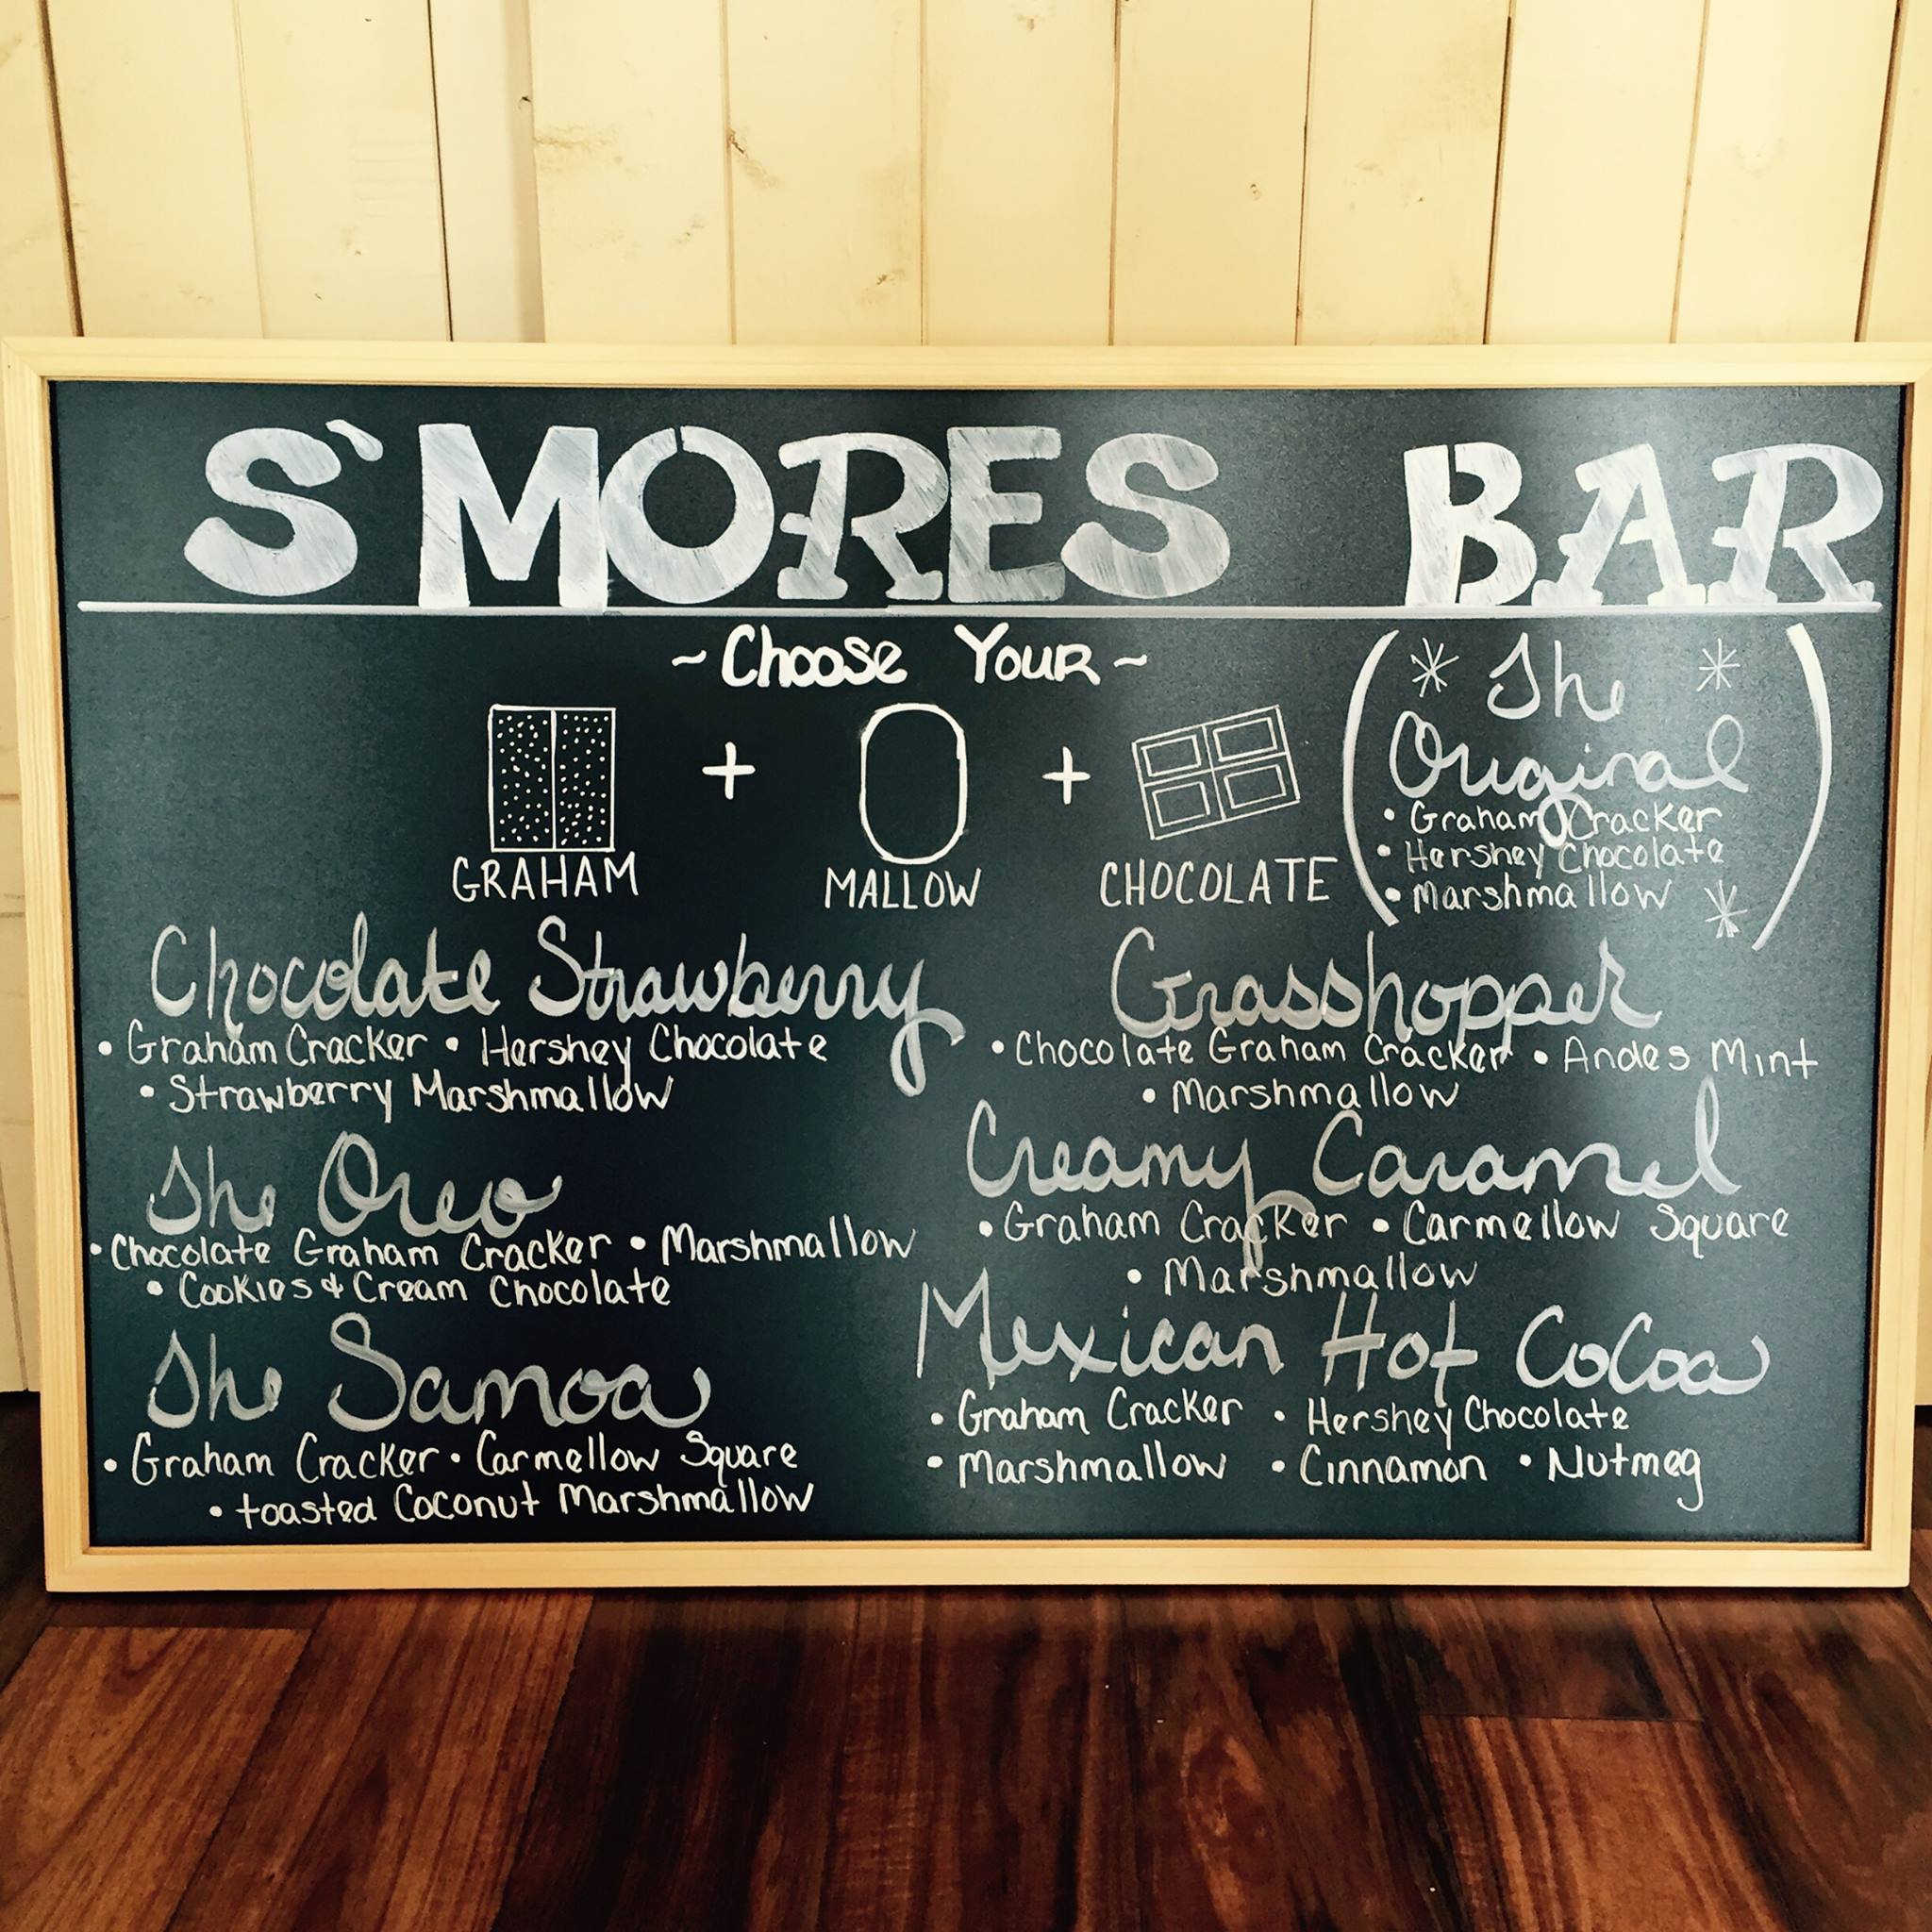 S`MORES BAR
~Choose Your~
+ +
GRAHAM
MALLOW
CHOCOLATE
The
Original
• Graham Cracker
• Hershey Chocolate
• Marshmallow
Chocolate Strawberry
• Graham Cracker • Hershey Chocolate
• Strawberry Marshmallow
The Oreo
• Chocolate Graham Cracker • Marshmallow
• Cookies & Cream Chocolate
The Samoa
• Graham Cracker • Carmellow Square
• toasted Coconut Marshmallow
Grasshopper
• Chocolate Graham Cracker • Andes Mint
• Marshmallow
Creamy Caramel
• Graham Cracker • Carmellow Square
• Marshmallow
Mexican Hot CoCoa
• Graham Cracker • Hershey Chocolate
• Marshmallow • Cinnamon • Nutmeg